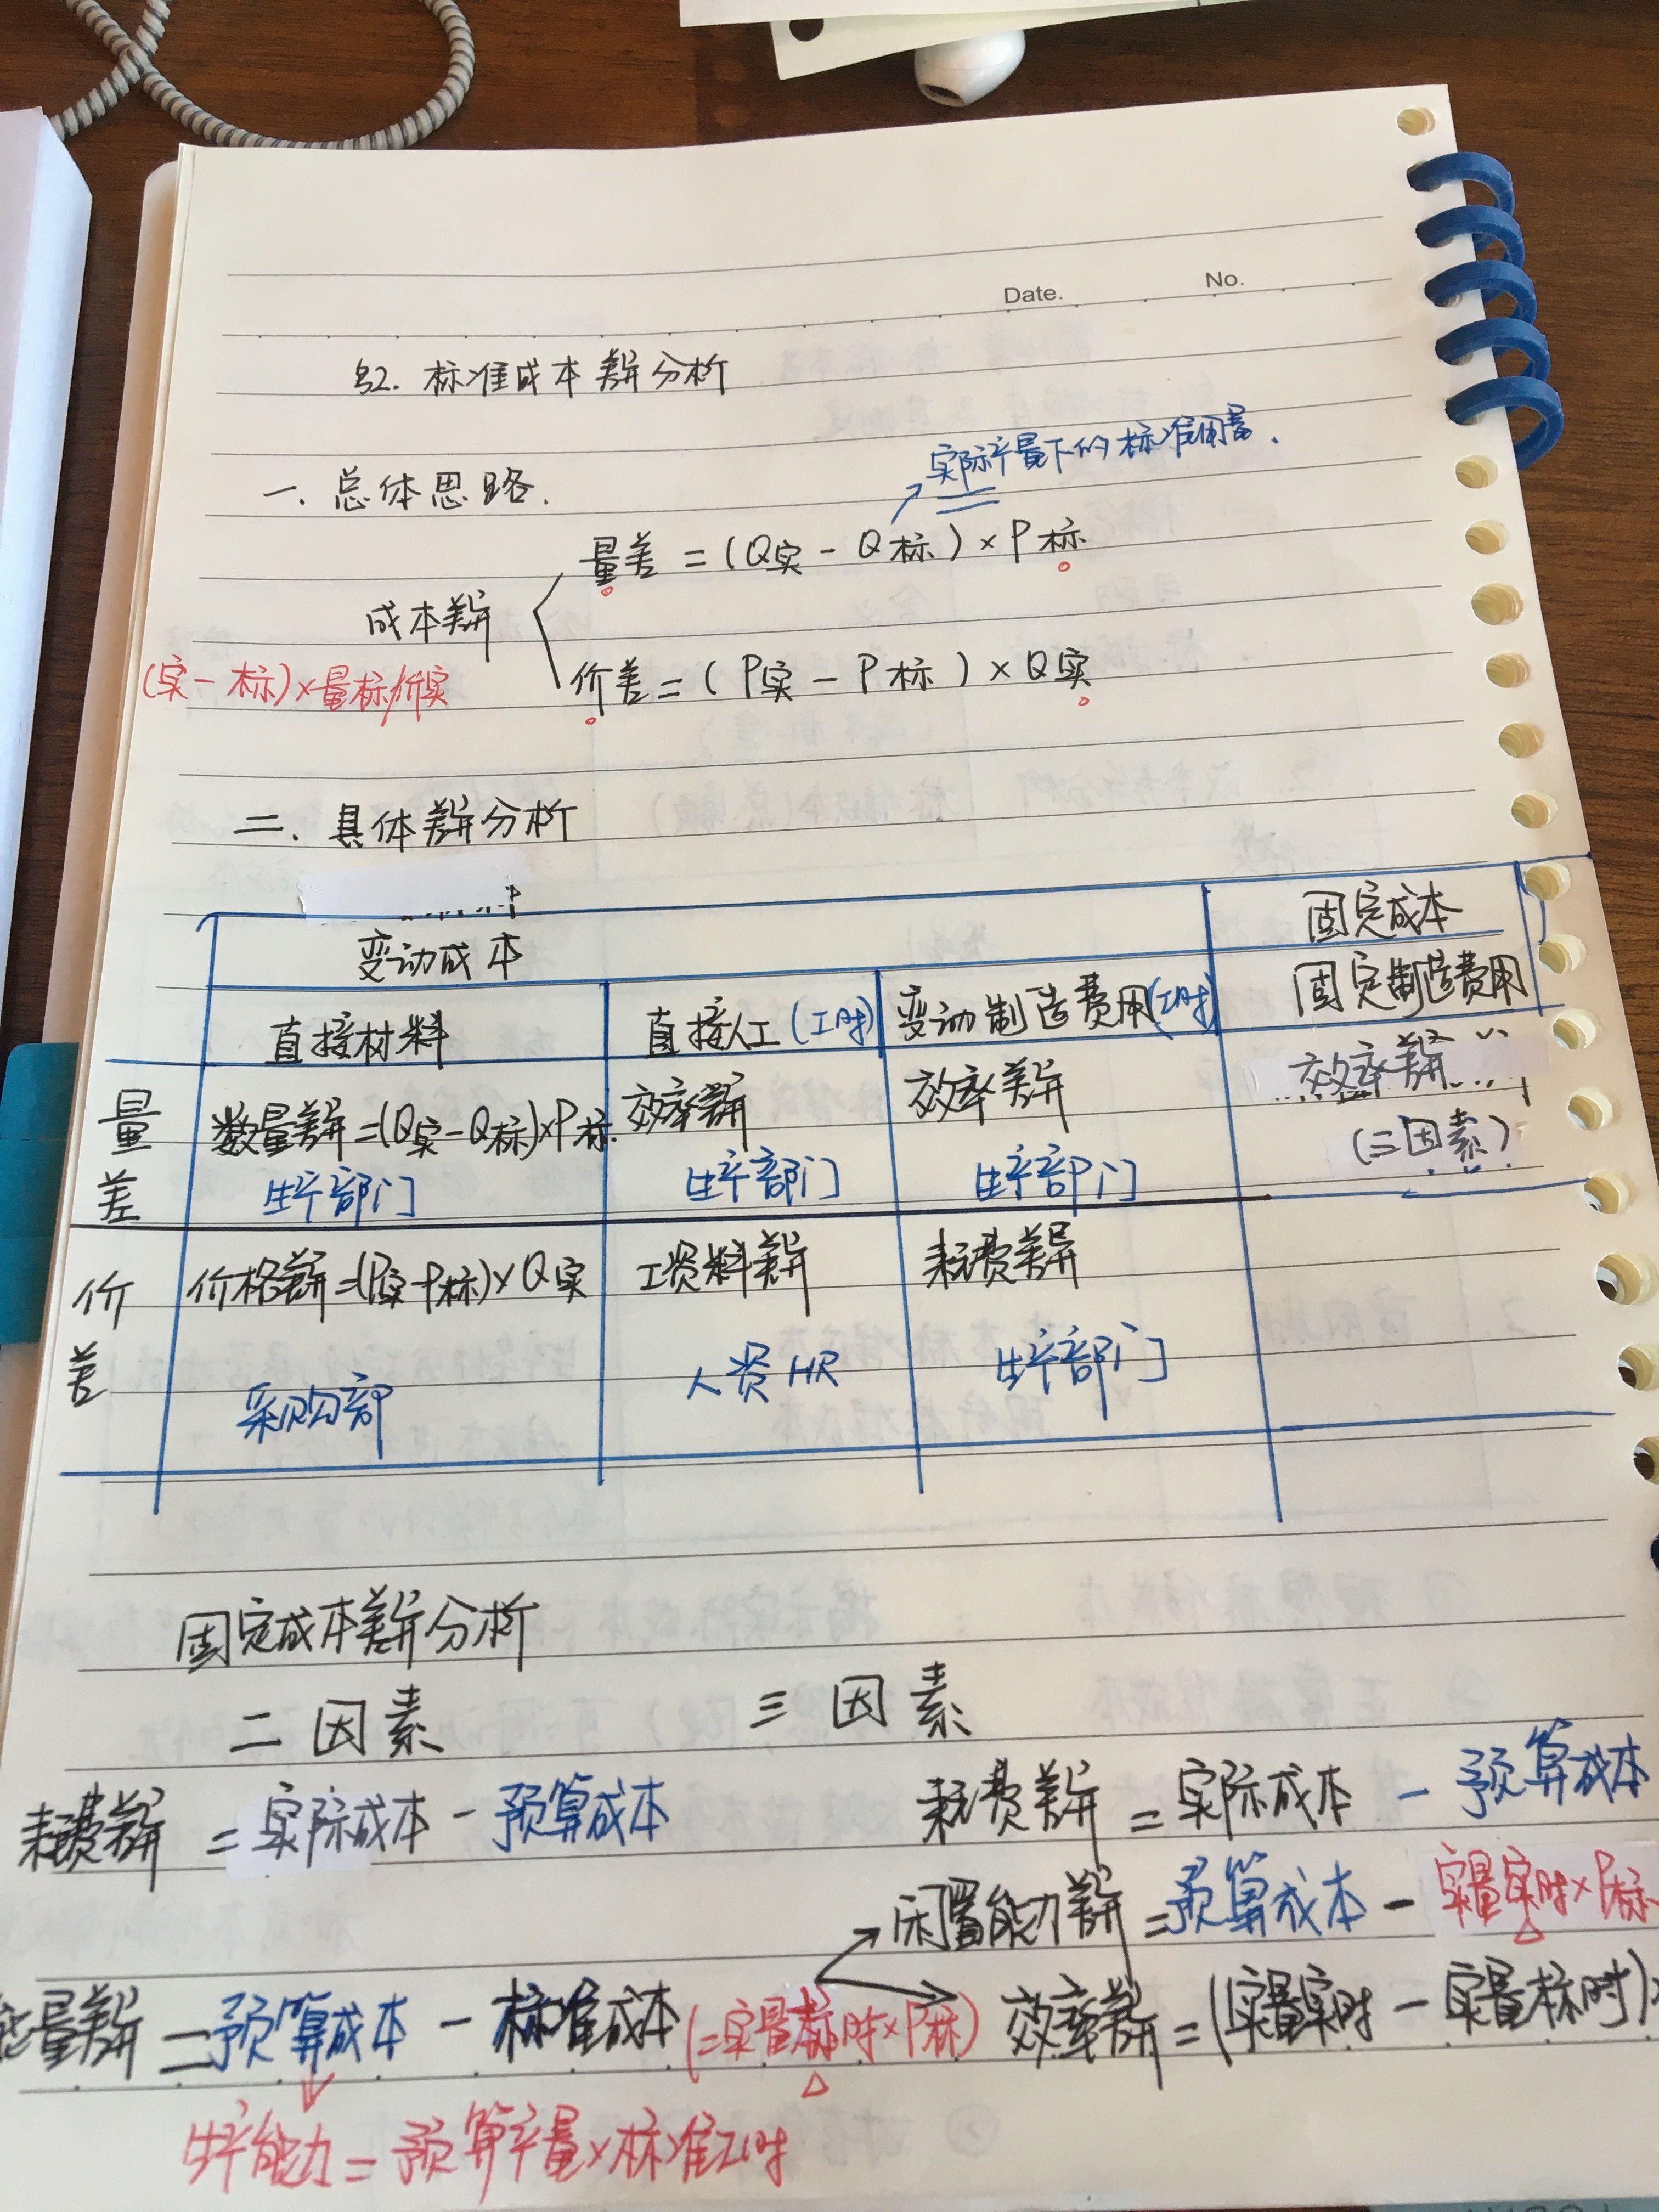 Date. No.
§2. 标准成本差异分析
实际产量下的标准用量.
一. 总体思路.
量差 = (Q实 - Q标) × P标
成本差异
(实-标)×量标/价实
价差 = (P实 - P标) × Q实
二. 具体差异分析
变动成本 固定成本
直接材料 直接人工 (工时) 变动制造费用 (工时) 固定制造费用
量差 数量差异=(Q实-Q标)×P标. 效率差异 效率差异 效率差异
(三因素)
生产部门 生产部门 生产部门
价差 价格差异=(P实-P标)×Q实 工资料差异 耗费差异
采购部 人资 HR 生产部门
固定成本差异分析
二因素 三因素
耗费差异 = 实际成本 - 预算成本 耗费差异 = 实际成本 - 预算成本
闲置能力差异 = 预算成本 - 实量实时×P标
能量差异 = 预算成本 - 标准成本 (=实量标时×P标) 效率差异 = (实量实时 - 实量标时)
生产能力 = 预算产量×标准工时